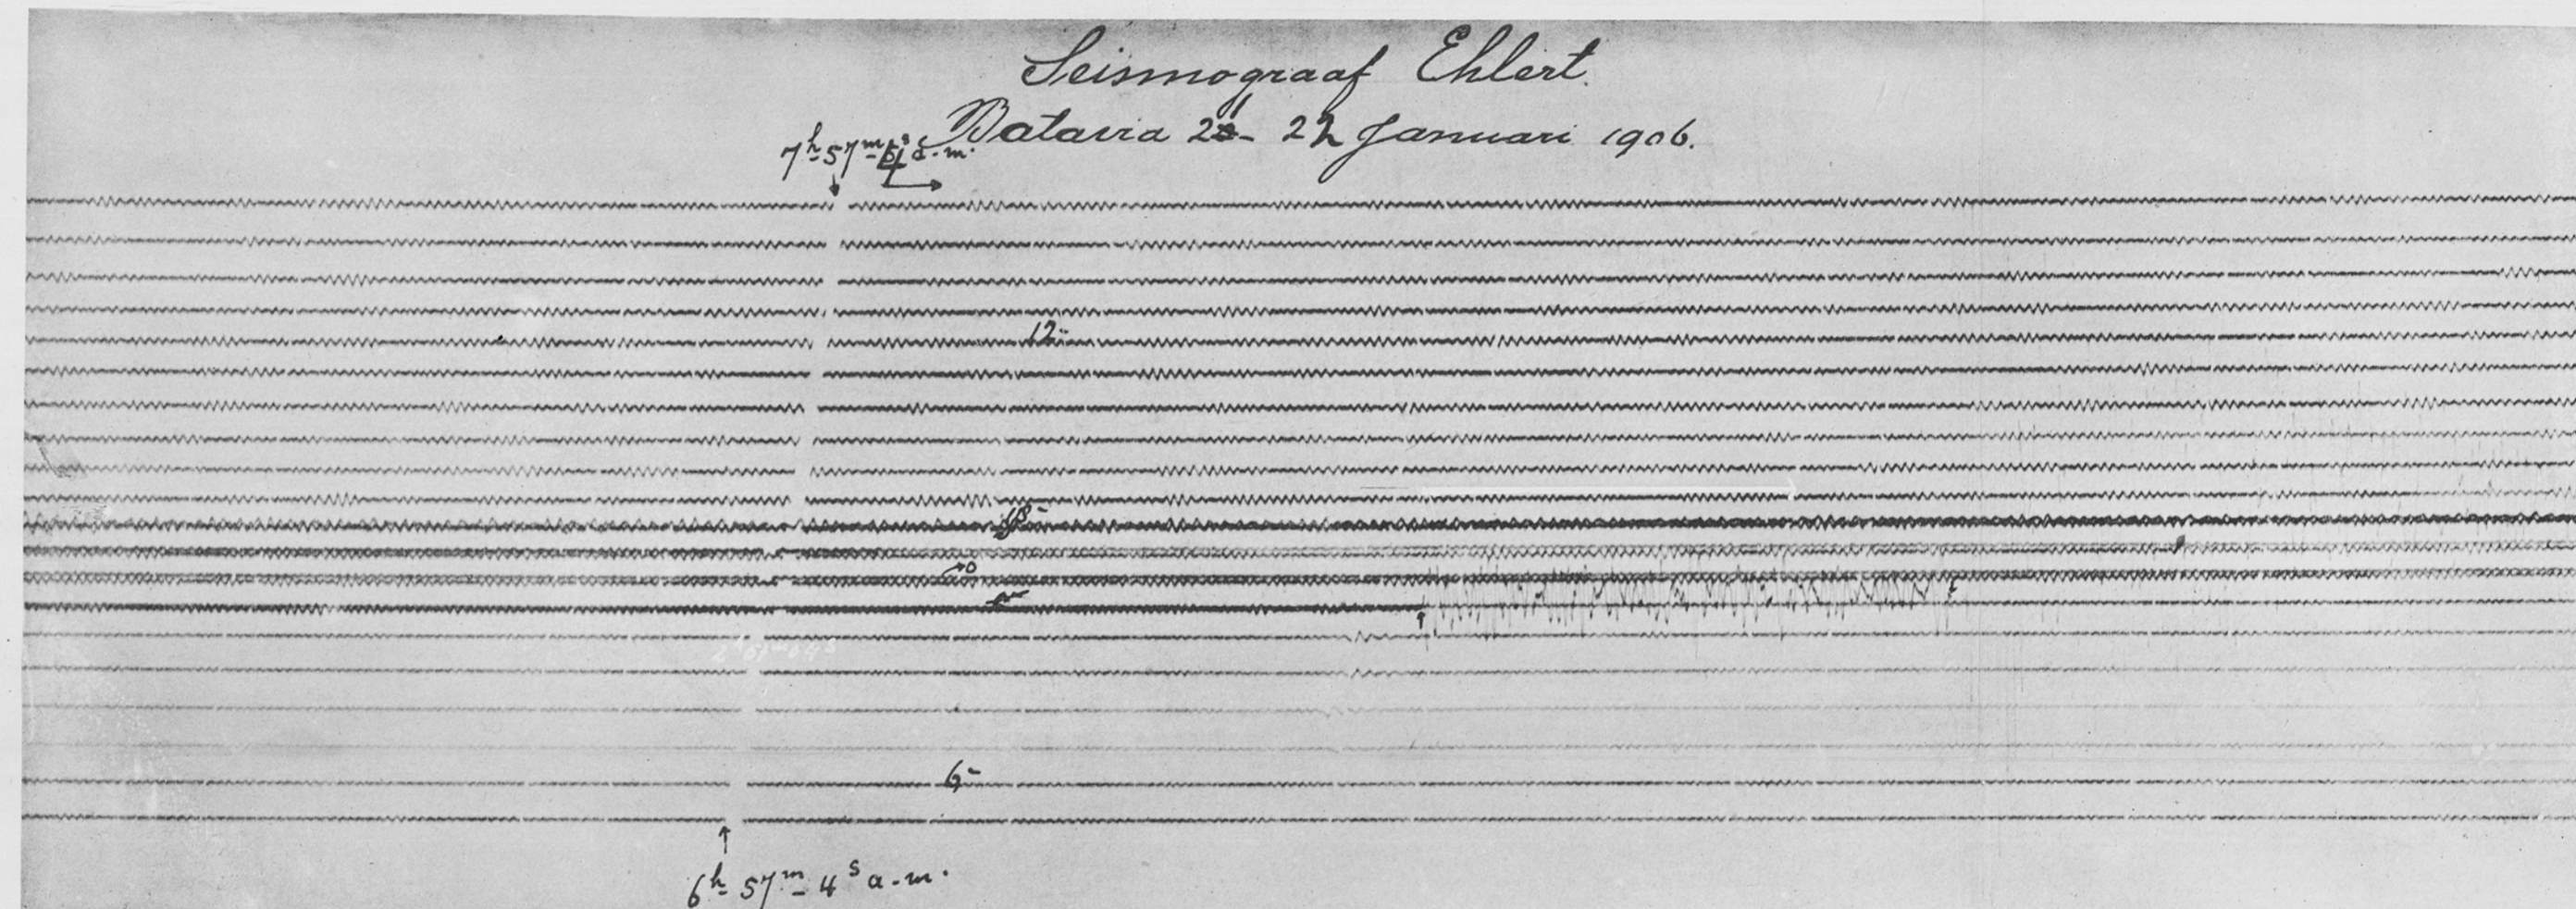 Seismograaf Ehlert.
Batavia 21 - 22 Januari 1906.
7h 57m a.m.
12
18
0
6
6h 57m 4s a.m.